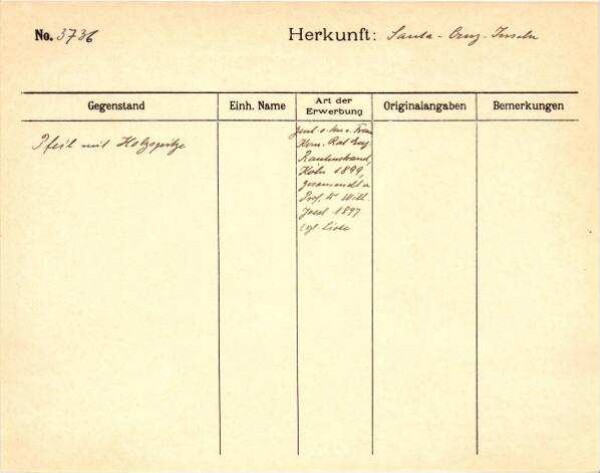 No. 3736
Herkunft: Santa-Cruz-Inseln
Gegenstand
Einh. Name
Art der Erwerbung
Originalangaben
Bemerkungen
Pfeil mit Holzspitze
v. Frau
Kom. Rat Eug.
Rautenstrauch,
Köln 1899,
gesammelt v.
Prof. Dr Wilh.
Joest 1897
cf Liste